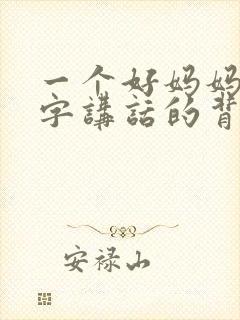 一个好妈妈
字講話的背
安禄山